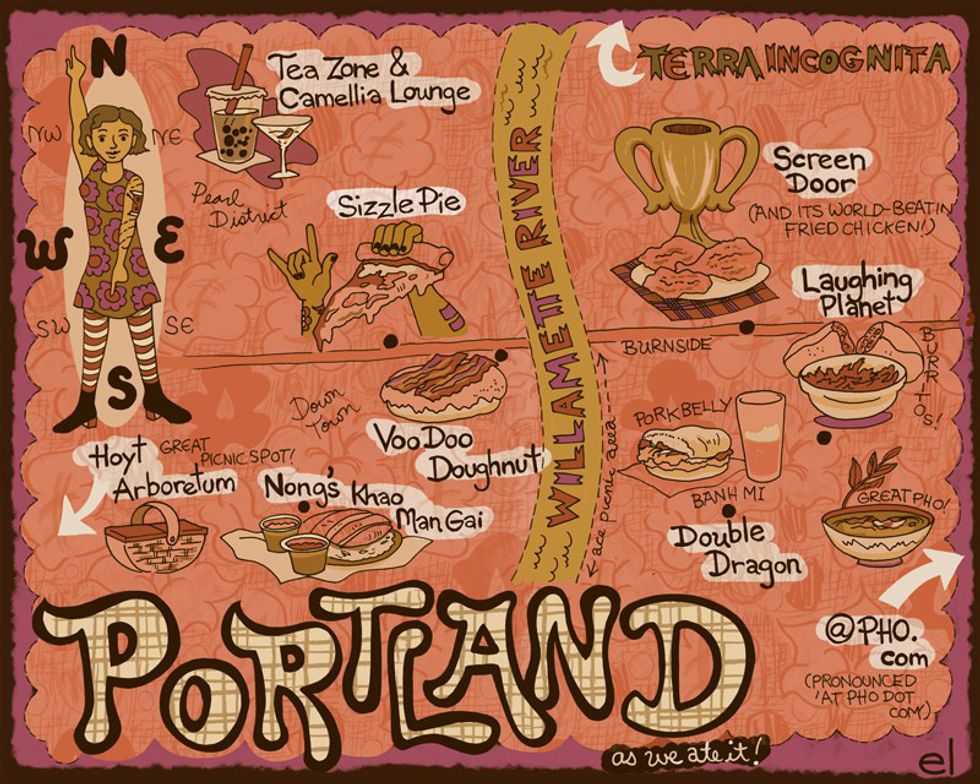 N
NW
NE
W
E
SW
SE
S
Tea Zone &
Camellia Lounge
Pearl
District
Sizzle Pie
WILLAMETTE RIVER
TERRA INCOGNITA
Screen
Door
(AND ITS WORLD-BEATIN'
FRIED CHICKEN!)
Laughing
Planet
BURRITOS!
BURNSIDE
Down
Town
VooDoo
Doughnut
Hoyt
Arboretum
GREAT
PICNIC SPOT!
Nong's Khao
Man Gai
ace picnic area
PORK BELLY
BANH MI
Double
Dragon
GREAT PHO!
@PHO.
com
(PRONOUNCED
'AT PHO DOT
COM')
PORTLAND
as we ate it!
el